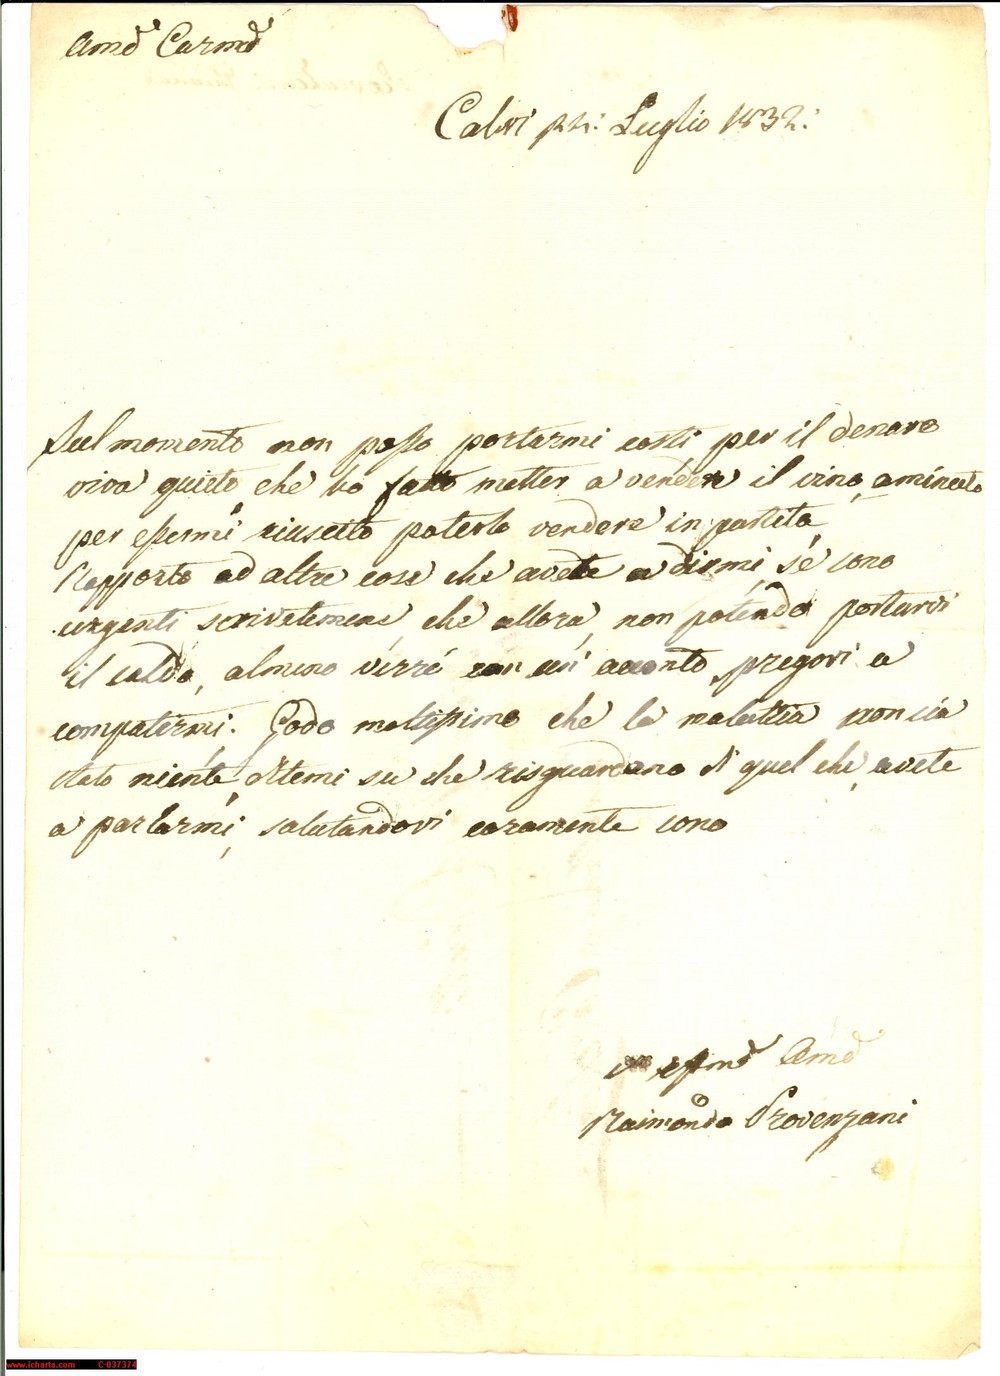 Amo Carmo
Calvi 22: Luglio 1832:
Sul momento non posso portarmi costi per il denaro
viva quieto che hò fatto metter a vendere il vino a minuto
per essermi riuscito poterlo vendere in partita
Rapporto ad altre cose che avete a dirmi, se sono
urgenti scrivetemene che allora, non potendo portarvi
il saldo, almeno verrò con un acconto, pregovi a
compatirmi. Godo moltissimo che la malattia non sia
stato niente, ditemi su che risguardano di quel che avete
a parlarmi, salutandovi caramente sono
Amo
Raimondo Provenzani
www.icharta.com C-037374